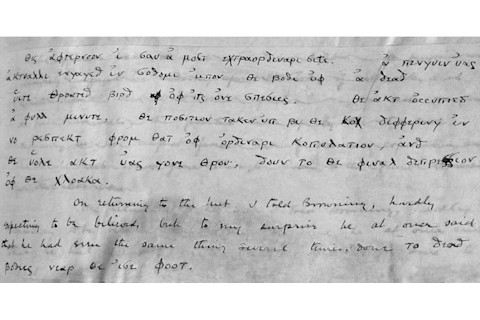 θις ἀφτερνοον ἰ σαυ ἀ μοστ εχτραορδιναρι σιτε. ἀ πενγυιν ὑας
ἀκτυαλλι ενγαγεδ ἰν σοδομι ὐπον θε βοδι ὀφ ἀ δεαδ
ὑιτε θροατεδ βιρδ ὀφ ἰτς ὀνε σπεσιες. θε ἀκτ ὀσευπιεδ
ἀ φυλλ μινυτε, θε ποσιτιον τακεν ὐπ βι θε κοκ διφφερινγ ἰν
νο ρεσπεκτ φρομ θατ ὀφ ὀρδιναρι κοπυλατιον, ἀνδ
θε ὑολε ἀκτ ὑας γονε θρου, δουν το θε φιναλ δεπρεσσιον
ὀφ θε χλοακα.
On returning to the hut I told Browning, hardly
expecting to be believed, but to my surprise he at once said
that he had seen the same thing several times, δονε το δεαδ
βοδιες νεαρ θε ἰσε φοοτ.